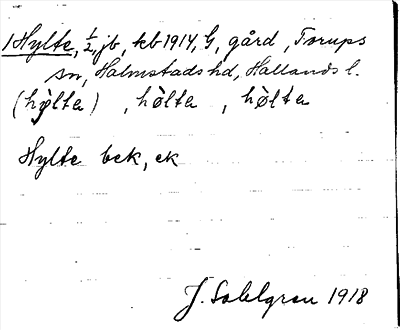 1 Hylte, ½, jb, kb 1914, G, gård, Torups
sn, Halmstads hd, Hallands l.
(hỳlta), hòlta, hø̀lta
Hylte bek, ek
J. Sahlgren 1918